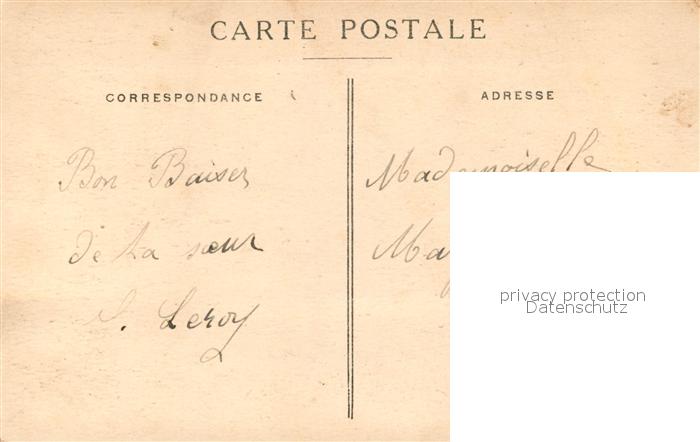 CARTE POSTALE
CORRESPONDANCE
ADRESSE
Bon Baiser
de ta sœur
S. Leroy
Mademoiselle
Ma
privacy protection
Datenschutz